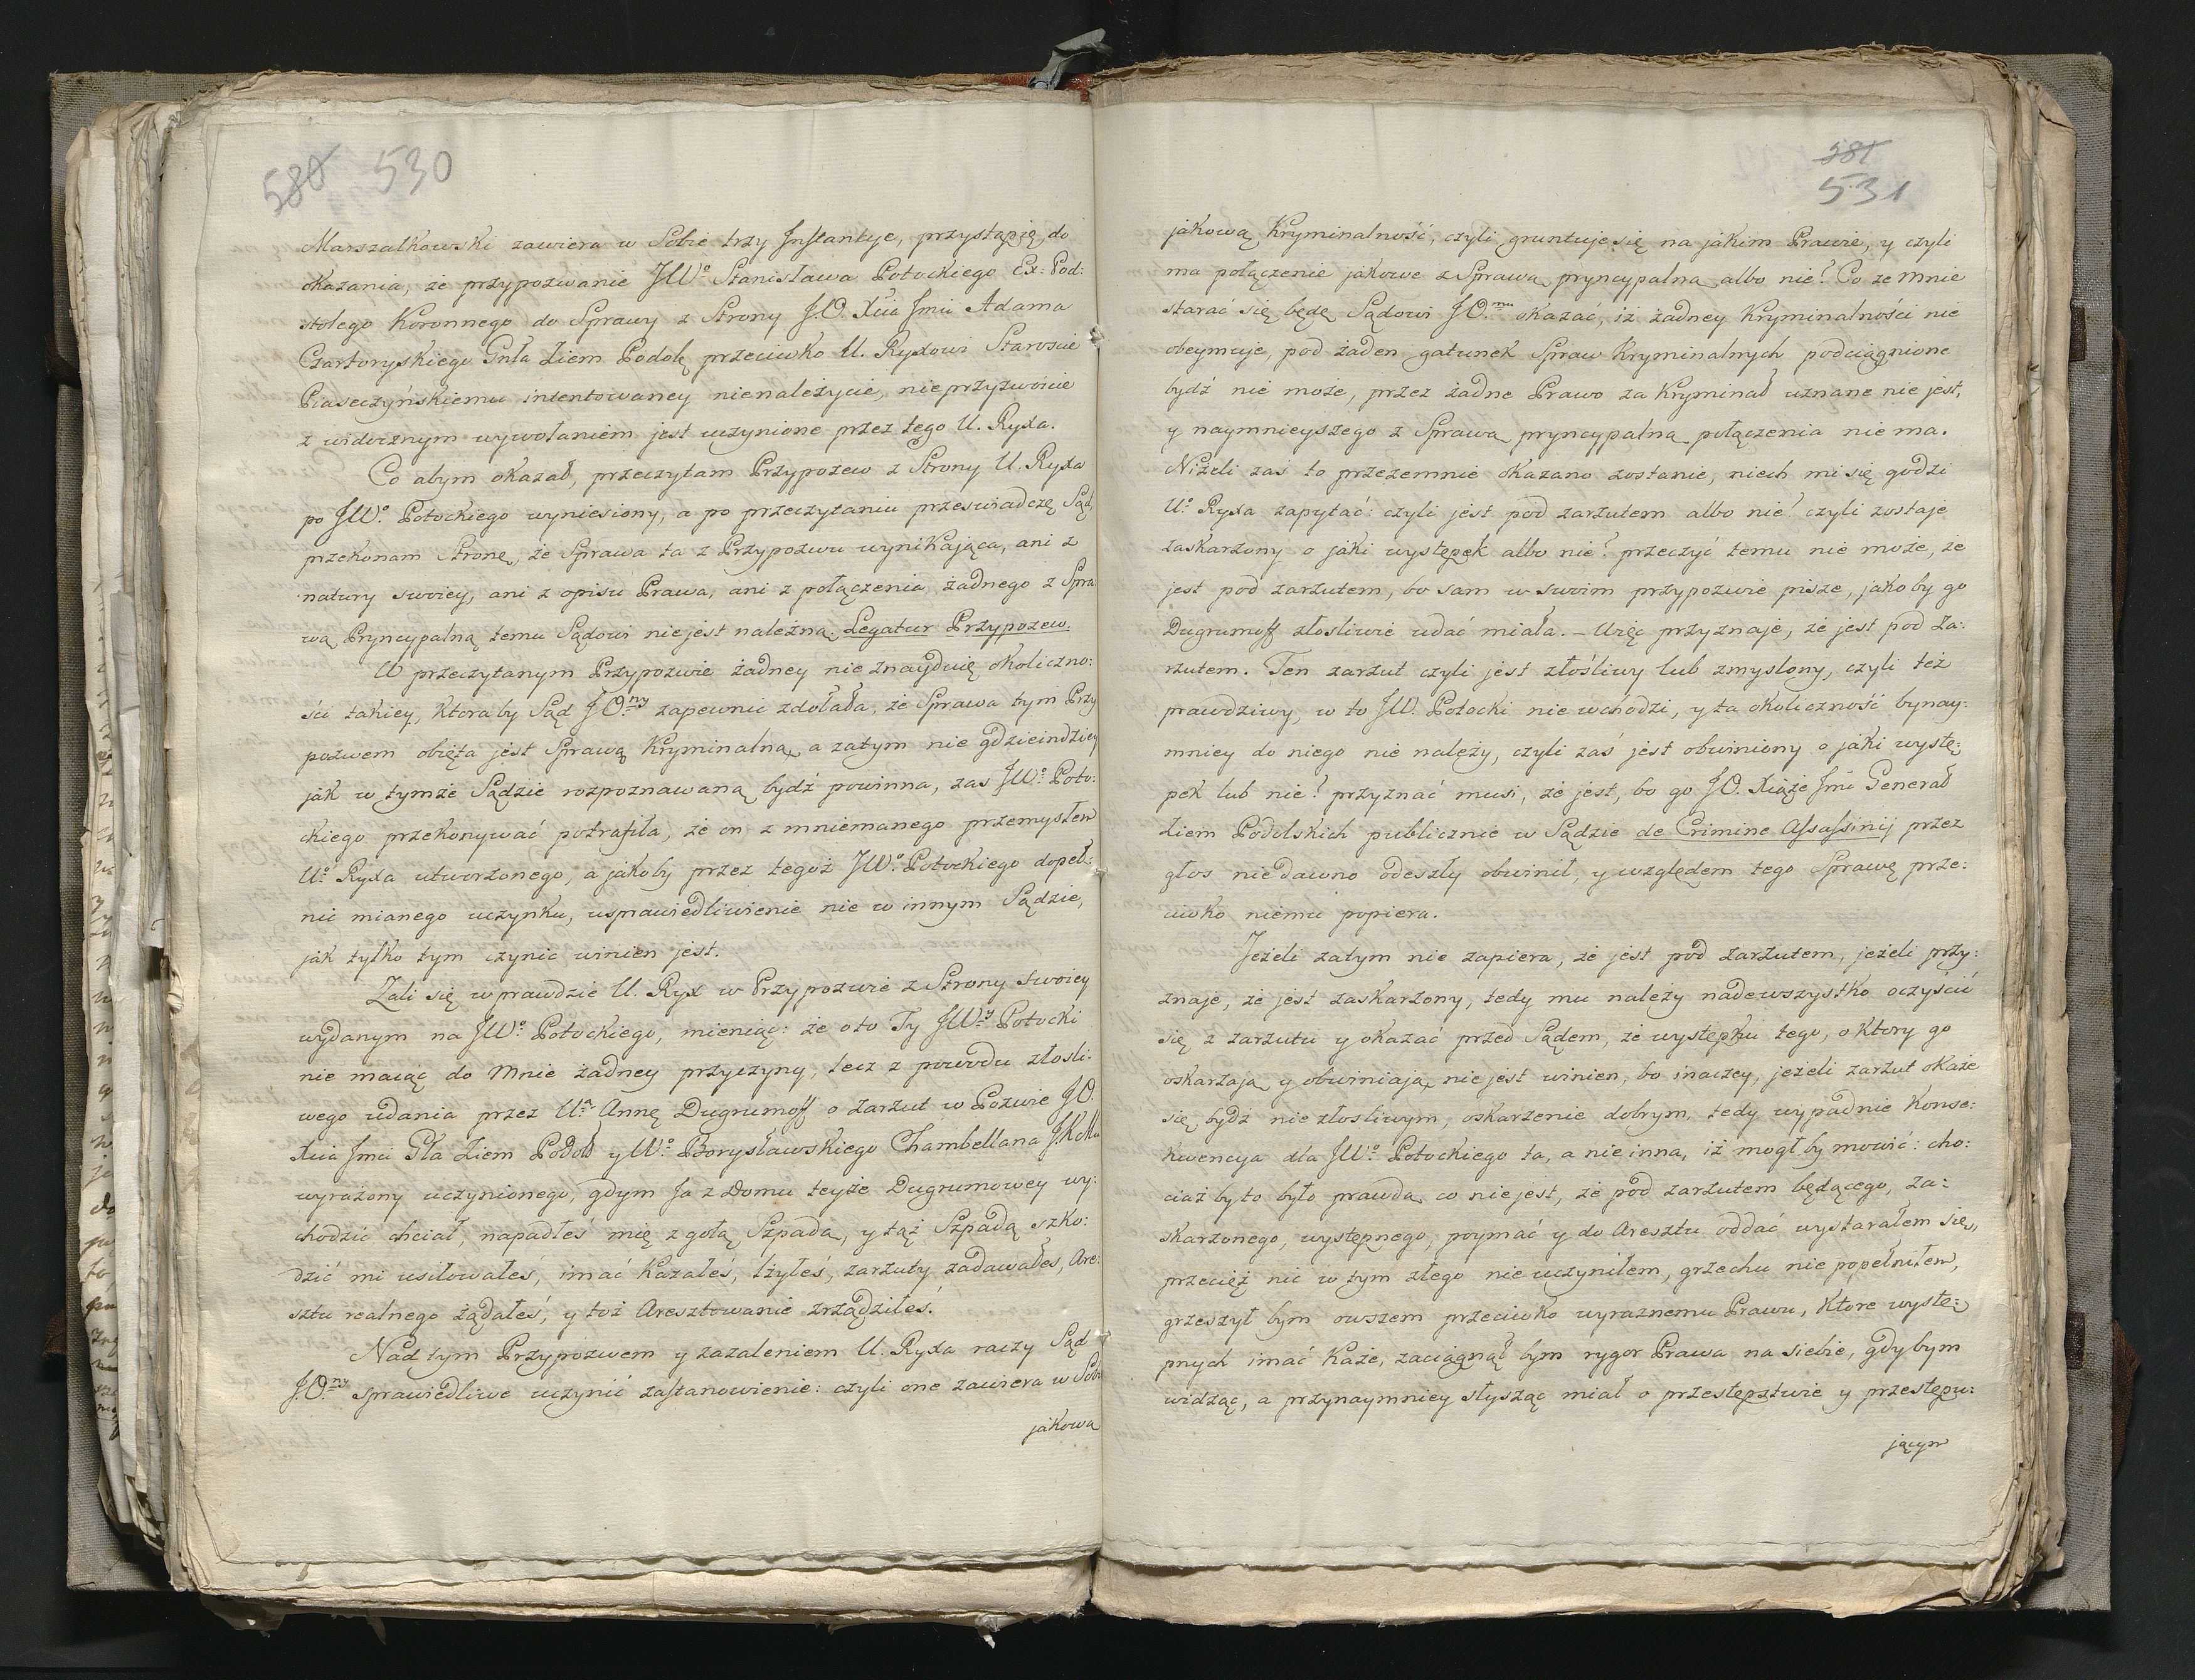 580 530
Marszałkowski zawiera w Sobie trzy Instancye, przystąpię do
okazania, że przypozwanie JW.º Stanisława Potockiego Ex: Pod:
stolego Koronnego do Sprawy z Strony J.O. Xcia Jmci Adama
Czartoryskiego Gnła Ziem Podolę przeciwko U. Ryxowi Staroscie
Piaseczyńskiemu intentowaney nienależycie, nieprzyzwoicie
z widocznym wywołaniem jest uczynione przez tego U. Ryxa.
Co abym okazał, przeczytam Przypozew z Strony U. Ryxa
po JW.º Potockiego wyniesiony, a po przeczytaniu przeswiadczę Sąd,
przekonam Stronę, że Sprawa ta z Przypozwu wynikająca, ani z
natury swoiey, ani z opisu Prawa, ani z połączenia żadnego z Spra:
wą Pryncypalną temu Sądowi nie jest należna. Legatur Przypozew.
W przeczytanym Przypozwie żadney nie znayduię okoliczno:
ści takiey, ktoraby Sąd J.O.ny zapewnic zdołała, że Sprawa tym Przy
pozwem obięta jest Sprawą Kryminalną, a zatym nie gdzieindziey
jak w tymże Sądzie rozpoznawaną bydź powinna, zas JW.º Poto:
ckiego przekonywać potrafiła, że on z mniemanego przemysłem
U.º Ryxa utworzonego, a jakoby przez tegoż JW.º Potockiego dopeł:
nic mianego uczynku, usprawiedliwienie nie w innym Sądzie,
jak tylko tym czynic winien jest.
Zali się wprawdzie U. Ryx w Przypozwie z Strony Swoiey
wydanym na JW.º Potockiego, mieniąc: że oto Ty JW.y Potocki
nie maiąc do mnie żadney przyczyny, lecz z powodu złosli:
wego udania przez U.ą Annę Dugrumoff o zarzut w Pozwie J.O.
Xcia Jmci Gła Ziem Podol y W.º Borysławskiego Chambellana JKMci
wyrażony uczynionego, gdym Ja z Domu teyże Dugrumowey wy:
chodzić chciał, napadłeś mię z gołą Szpadą, y tąż Szpadą szko:
dzić mi usiłowałeś, imać Kazałeś, lżyłeś, zarzuty zadawałeś, Are:
sztu realnego żądałeś, y toż Aresztowanie zrządziłeś.
Nad tym Przypozwem y zazaleniem U. Ryxa raczy Sąd
J.O.ny sprawiedliwe uczynić zastanowienie: czyli one zawiera w Sobi
jakową
581
531
jakową Kryminalność, czyli gruntuje się na jakim Prawie, y czyli
ma połączenie jakowe z Sprawą pryncypalną albo nie? Co ze mnie
starać się będę Sądowi J.O.mu okazać, iż żadney Kryminalności nie
obeymuje, pod żaden gatunek Spraw Kryminalnych podciągnione
bydź nie może, przez żadne Prawo za Kryminał uznane nie jest,
y naymnieyszego z Sprawą pryncypalną połączenia nie ma.
Niżeli zaś to przezemnie okazano zostanie, niech mi się godzi
U.º Ryxa zapytać: czyli jest pod zarzutem albo nie? czyli zostaje
zaskarżony o jaki występek albo nie? przeczyć temu nie może, że
jest pod zarzutem, bo sam w swoim przypozwie pisze, jakoby go
Dugrumoff złosliwie udać miała. – Więc przyznaje, że jest pod Za:
rzutem. Ten zarzut czyli jest złośliwy lub zmyslony, czyli też
prawdziwy, w to JW. Potocki nie wchodzi, y ta okoliczność bynay:
mniey do niego nie należy, czyli zaś jest obwiniony o jaki wystę:
pek lub nie? przyznać musi, że jest, bo go J.O. Xiąże Jmć Generał
Ziem Podolskich publicznie w Sądzie de Crimine Assassinij przez
głos niedawno odeszły obwinił, y względem tego Sprawę prze:
ciwko niemu popiera.
Jeżeli zatym nie zapiera, że jest pod zarzutem, jeżeli przy:
znaje, że jest zaskarżony, tedy mu należy nadewszystko oczyścić
się z zarzutu y okazać przed Sądem, że występku tego, o ktory go
oskarżają y obwiniają, nie jest winien, bo inaczey, jeżeli zarzut okaże
się bydź niezłosliwym, oskarżenie dobrym, tedy wypadnie Konse:
kwencya dla JW.º Potockiego ta, a nie inna, iż mogłby mowić: cho:
ciaż by to było prawdą, co nie jest, że pod zarzutem będącego, za:
skarżonego, występnego, poymać y do Aresztu oddać wystarałem się,
przecięż nic w tym złego nie uczyniłem, grzechu nie popełniłem,
grzeszył bym owszem przeciwko wyraznemu Prawu, Ktore wystę:
pnych imać Każe, zaciągnął bym rygor Prawa na siebie, gdybym
widząc, a przynaymniey słysząc miał o przestępstwie y przestępu:
jącym